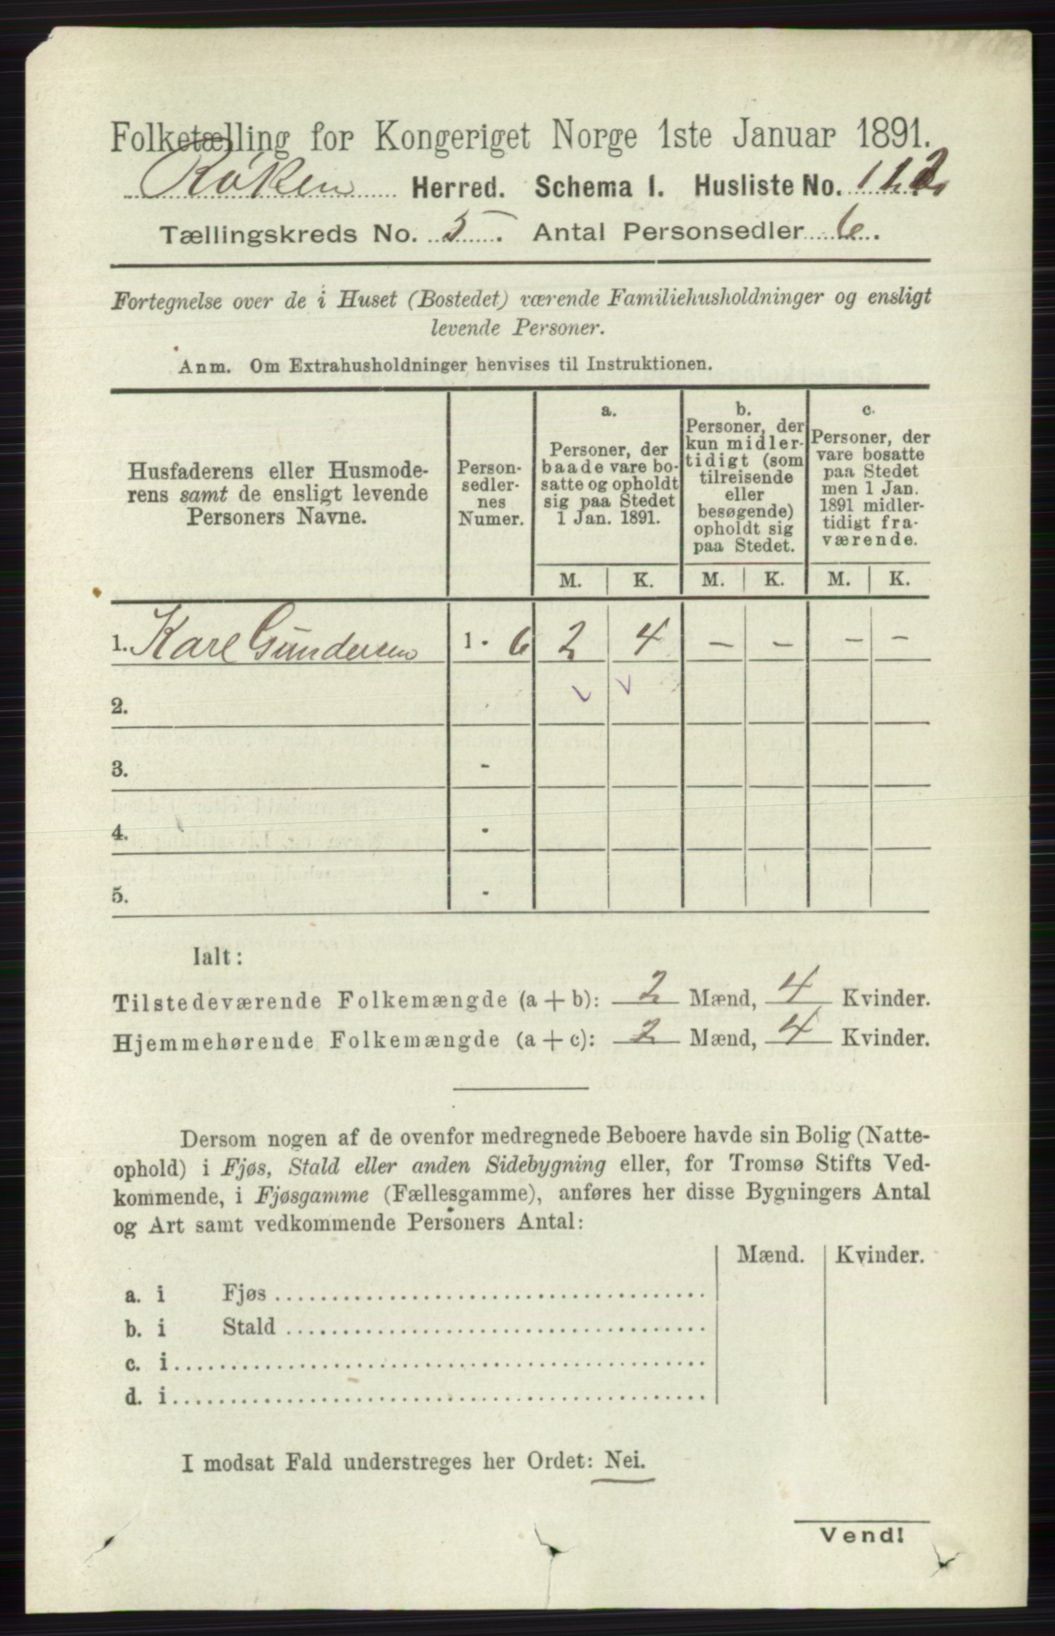 Folketælling for Kongeriget Norge 1ste Januar 1891.
Røken Herred. Schema I. Husliste No.
Tællingskreds No. 5. Antal Personsedler 6.
Fortegnelse over de i Huset (Bostedet) værende Familiehusholdninger og ensligt
levende Personer.
Anm. Om Extrahusholdninger henvises til Instruktionen.
Husfaderens eller Husmode-
rens samt de ensligt levende
Personers Navne.
Person-
sedler-
nes
Numer.
a.
Personer, der
baade vare bo-
satte og opholdt
sig paa Stedet
1 Jan. 1891.
b.
Personer, der
kun midler-
tidigt (som
tilreisende
eller
besøgende)
opholdt sig
paa Stedet.
c.
Personer, der
vare bosatte
paa Stedet
men 1 Jan.
1891 midler-
tidigt fra-
værende.
M. K. M. K. M. K.
1. Karl Gundersen 1 - 6 2 4 - - - -
2.
3. -
4. -
5. -
Ialt:
Tilstedeværende Folkemængde (a + b): 2 Mænd, 4 Kvinder.
Hjemmehørende Folkemængde (a + c): 2 Mænd, 4 Kvinder.
Dersom nogen af de ovenfor medregnede Beboere havde sin Bolig (Natte-
ophold) i Fjøs, Stald eller anden Sidebygning eller, for Tromsø Stifts Ved-
kommende, i Fjøsgamme (Fællesgamme), anføres her disse Bygningers Antal
og Art samt vedkommende Personers Antal:
Mænd. Kvinder.
a. i Fjøs
b. i Stald
c. i
d. i
I modsat Fald understreges her Ordet: Nei.
Vend!